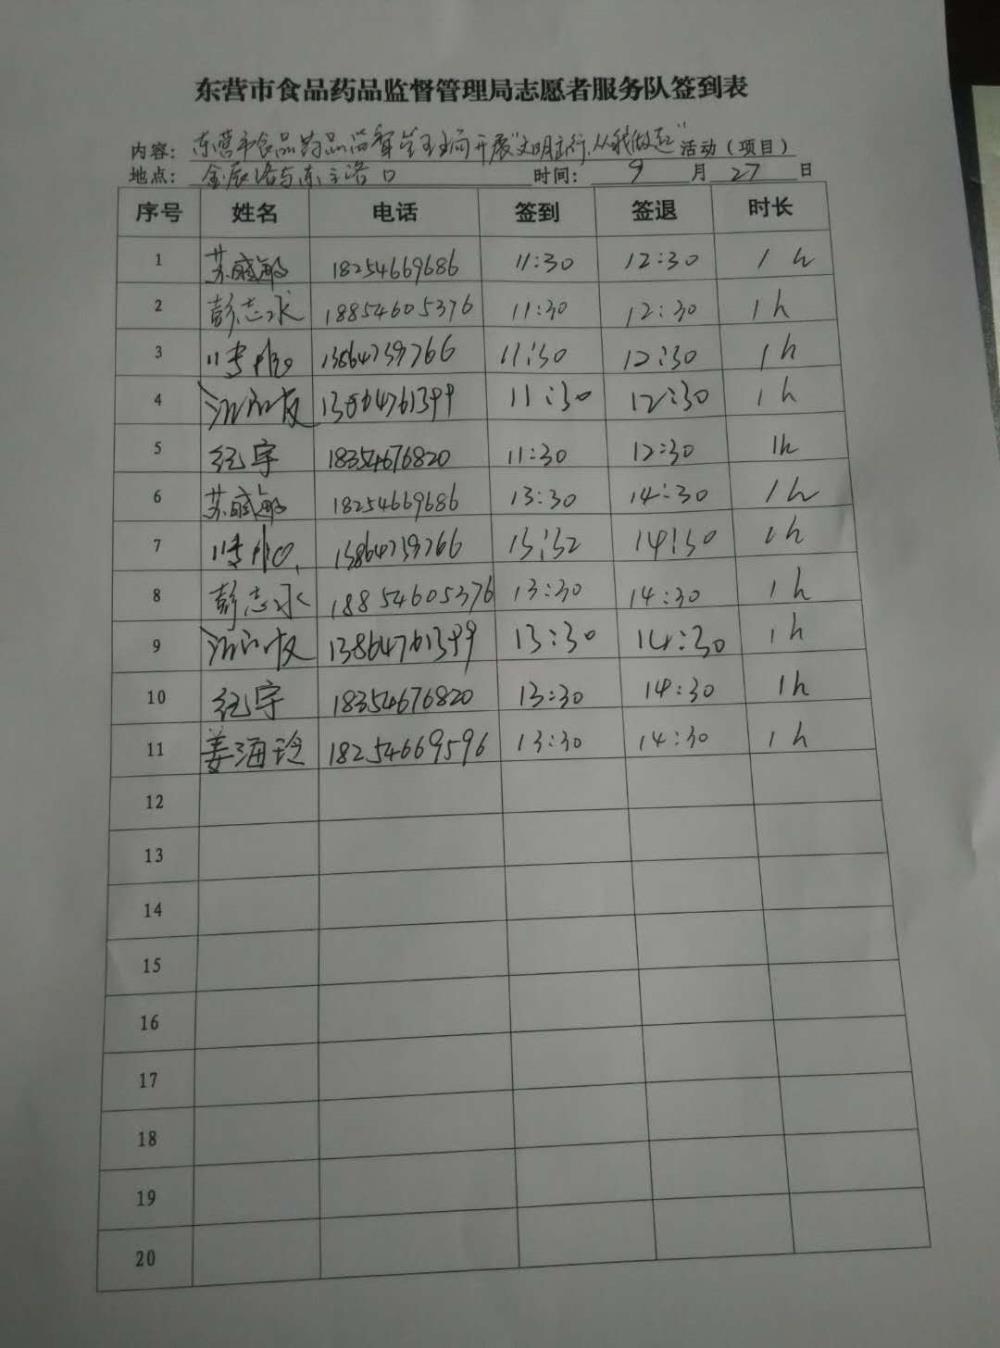 东营市食品药品监督管理局志愿者服务队签到表
内容：东营市食品药品监督管理局开展"文明出行，从我做起"活动（项目）
地点：金辰路与东三路口 时间：9月27日
序号 姓名 电话 签到 签退 时长
1 苏 敏 18254669686 11:30 12:30 1h
2 彭志水 18854605376 11:30 12:30 1h
3 13864739766 11:30 12:30 1h
4 13864761399 11:30 12:30 1h
5 纪宇 18354676820 11:30 12:30 1h
6 苏 敏 18254669686 13:30 14:30 1h
7 13864739766 14:30 1h
8 彭志水 18854605376 13:30 14:30 1h
9 13864761399 13:30 14:30 1h
10 纪宇 18354676820 13:30 14:30 1h
11 姜海玲 18254669596 13:30 14:30 1h
12
13
14
15
16
17
18
19
20